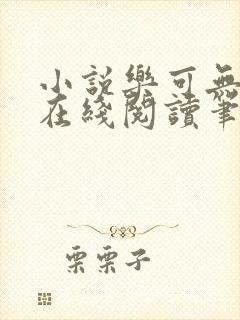 小説樂可無
在綫閱讀筆
栗栗子